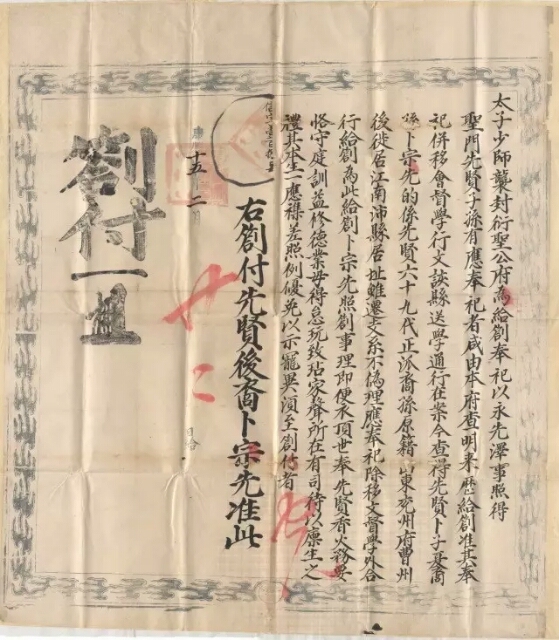 太子少師襲封衍聖公府為給劄奉祀以永先澤事照得
聖門先賢子孫有應奉祀者咸由本府查明来歷給劄准其奉
祀併移會督學行文該縣送學通行在案今查得先賢卜子夏裔
孫卜宗先的係先賢六十九代正派裔孫原籍山東兖州府曹州
後徙居江南沛縣居址雖遷支系不偽理應奉祀除移文督學外合
行給劄為此給劄卜宗先照劄事理即便永頂世奉先賢香火務要
恪守庭訓益修德業毋得怠玩致玷家聲所在有司待以廪生之
禮其本生一應襍差照例優免以示寵異湏至劄付者
右劄付先賢後裔卜宗先准此
康
十五
二
月
日給
劄付一